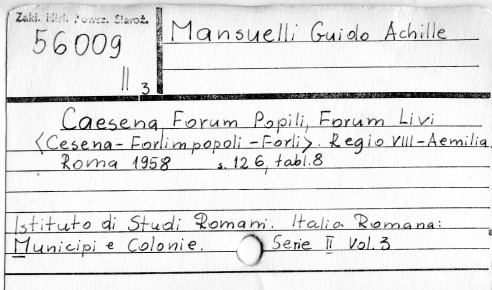 Zakł. Hist. Powsz. Staroż.
56009
II 3
Mansuelli Guido Achille
Caesena, Forum Popili, Forum Livi
<Cesena-Forlimpopoli-Forlì>. Regio VIII-Aemilia.
Roma 1958 s. 126, tabl. 8
Istituto di Studi Romani. Italia Romana:
Municipi e Colonie. Serie II Vol. 3